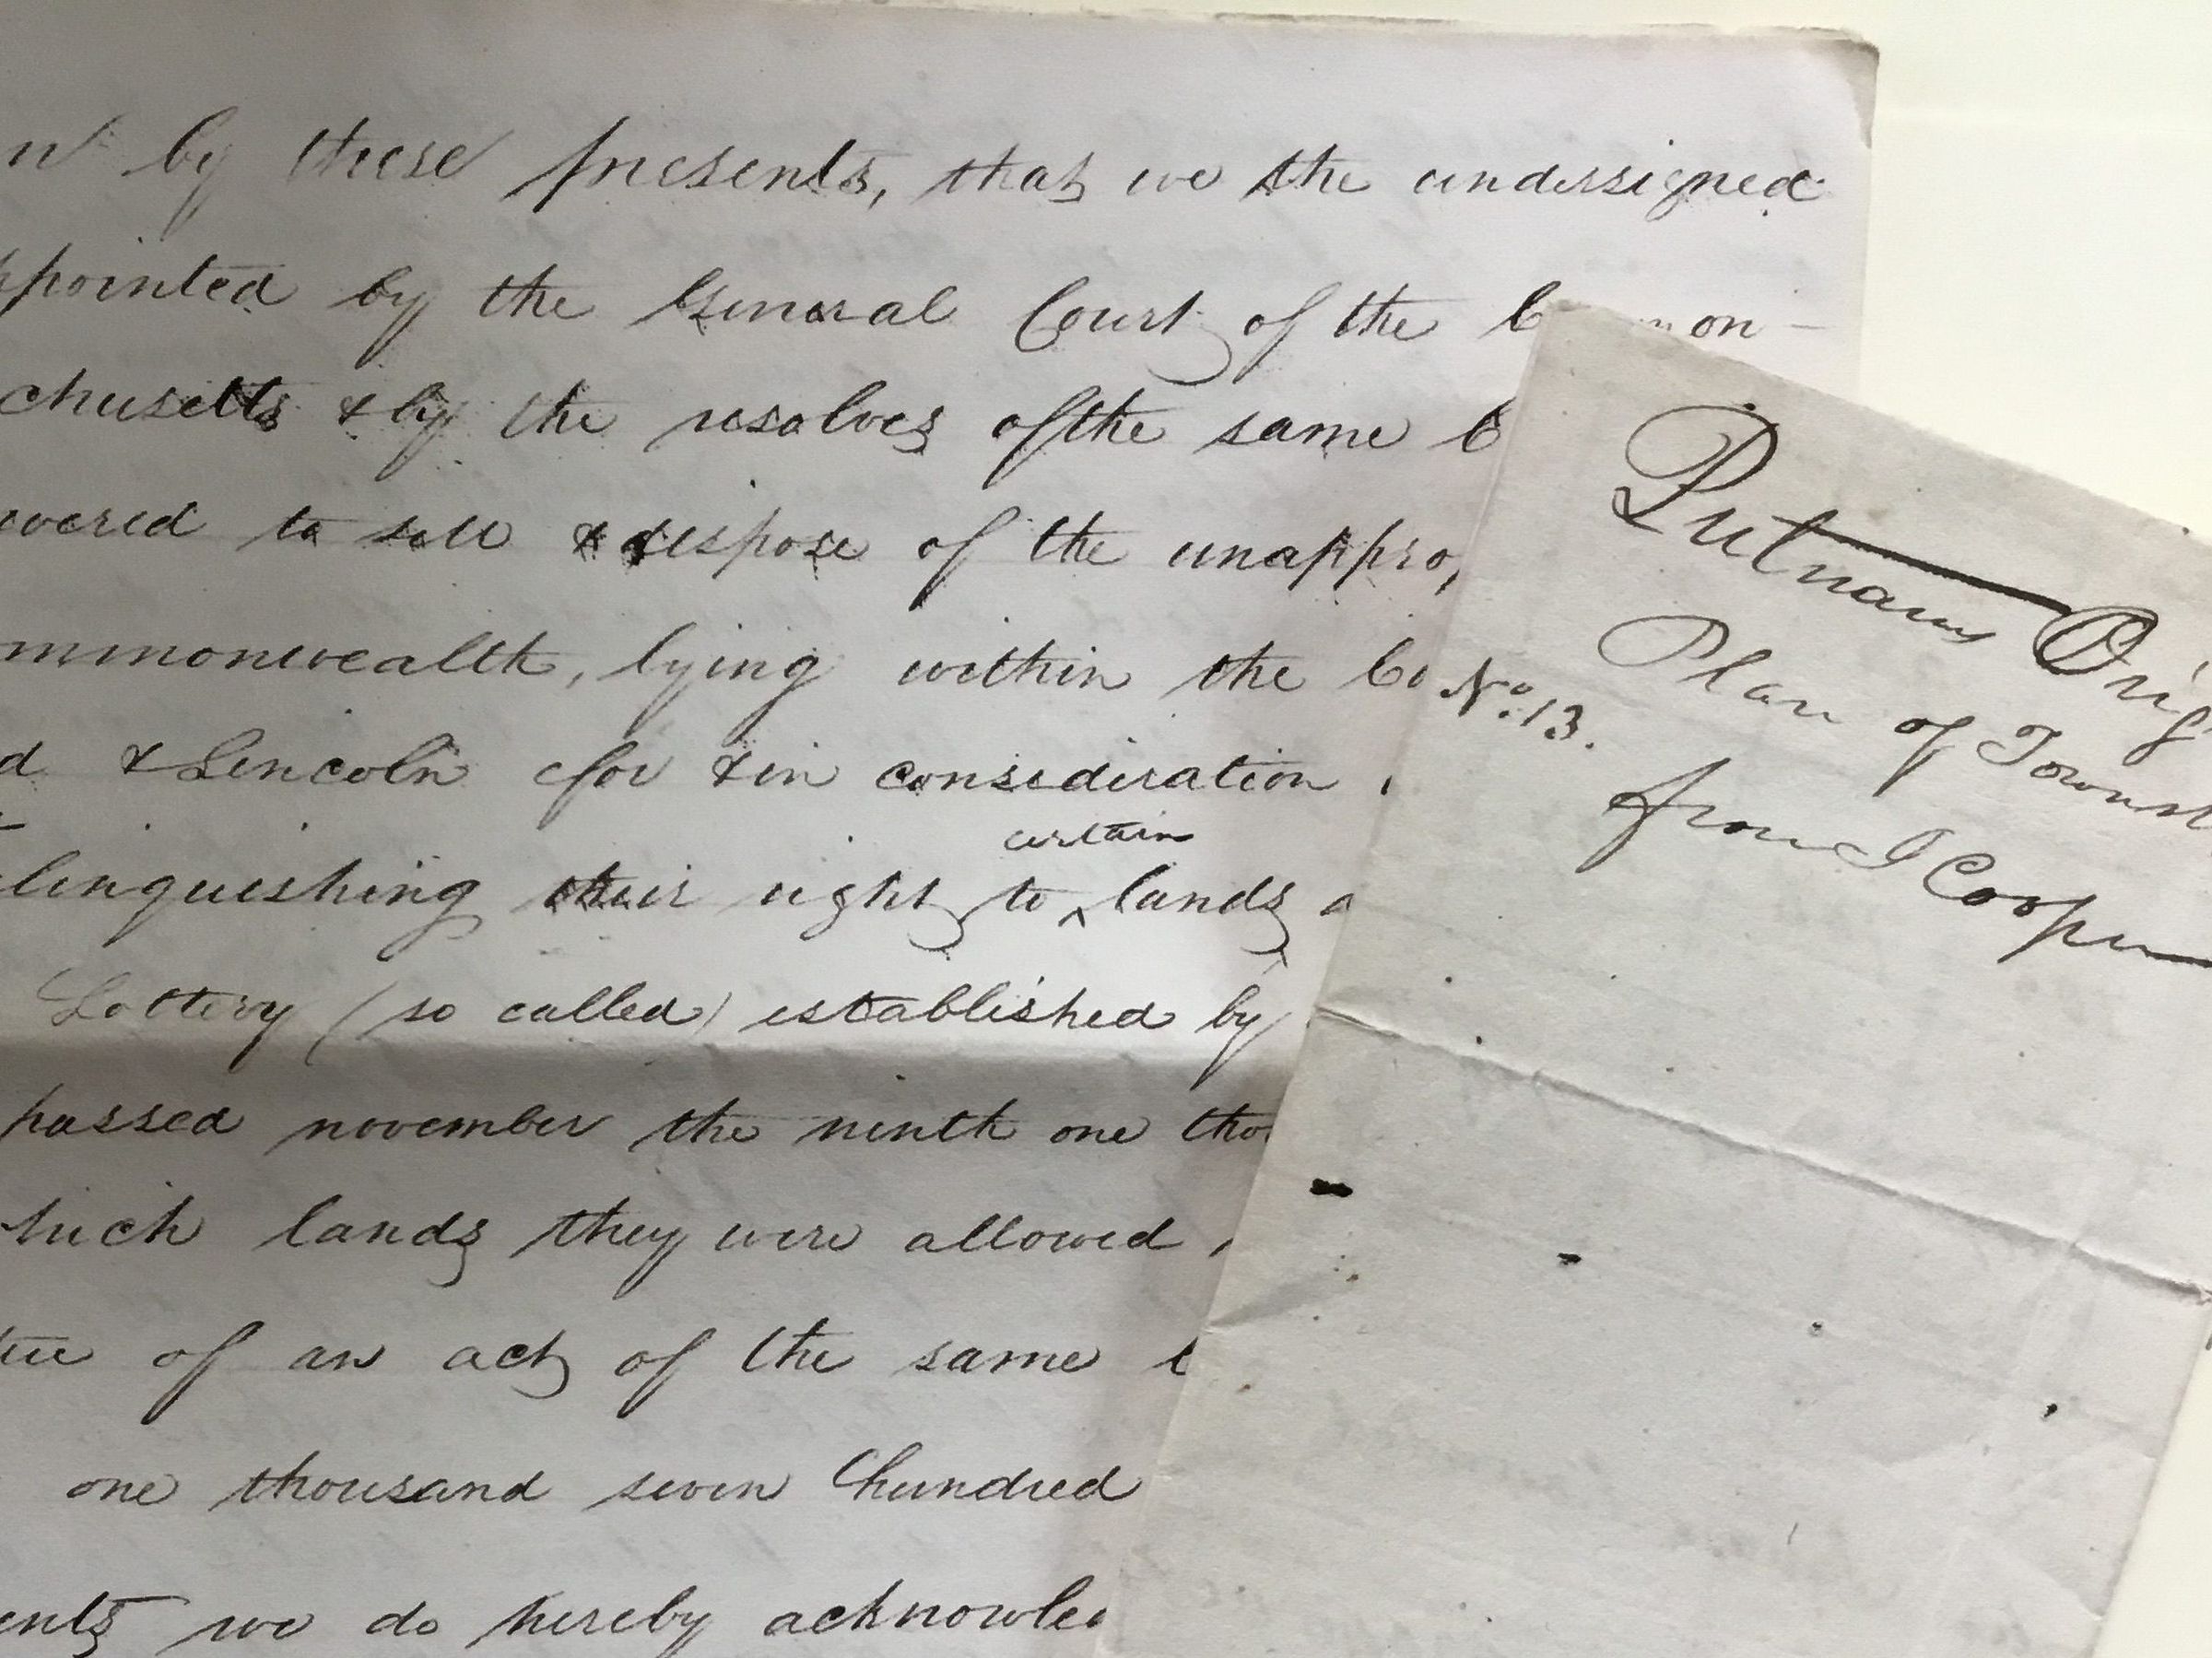 by these presents, that we the undersigned
ppointed by the General Court of the C mon-
chusetts & by the resolves of the same
wered to sell & dispose of the unappro
mmonwealth, lying within the Co
d & Lincoln for & in consideration
certain
linquishing their right to ^ lands a
Lottery (so called) established by
passed november the ninth one tho
hich lands they were allowed
tue of an act of the same
one thousand seven hundred
ents we do hereby acknowled
Putnams Orig
Plan of Townsh
No. 13.
from I Cooper